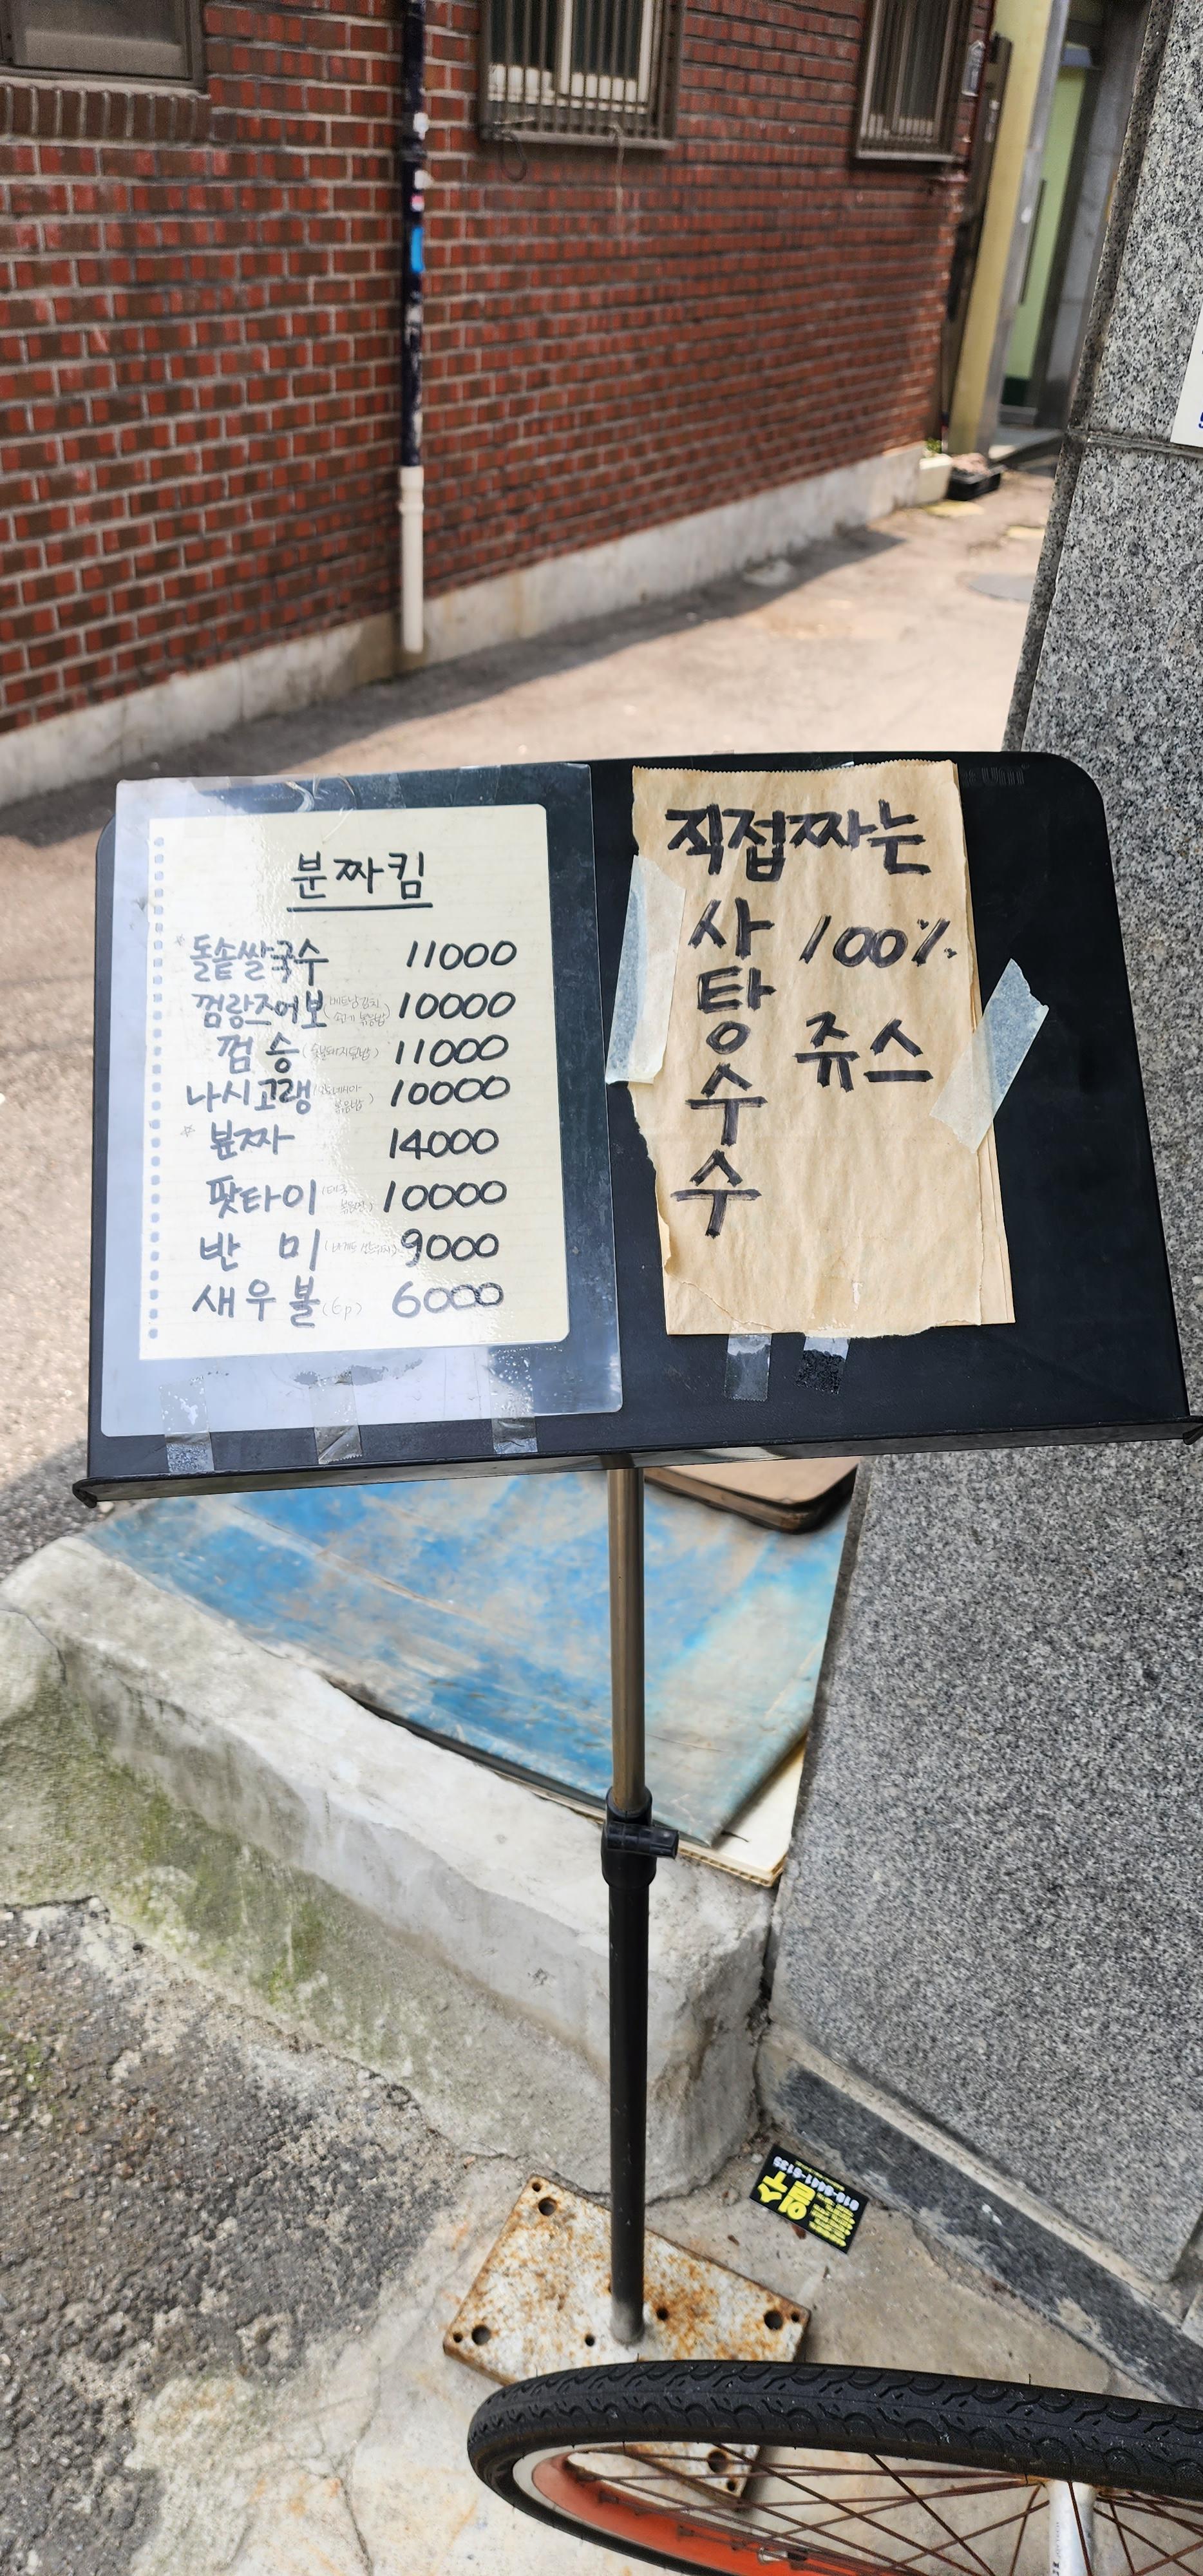 분짜킴
*돌솥쌀국수 11000
껌랑즈어보(베트남김치 소고기 볶음밥) 10000
껌승(숯불돼지덮밥) 11000
나시고랭(인도네시아 볶음밥) 10000
*분짜 14000
팟타이(태국 볶음면) 10000
반 미(바게트 샌드위치) 9000
새우볼(6p) 6000
직접짜는
사탕수수
100%
쥬스
일수